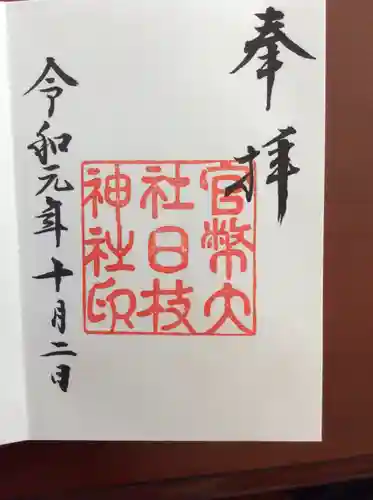 奉拝
官幣大
社日技
神社印
令和元年十月二日